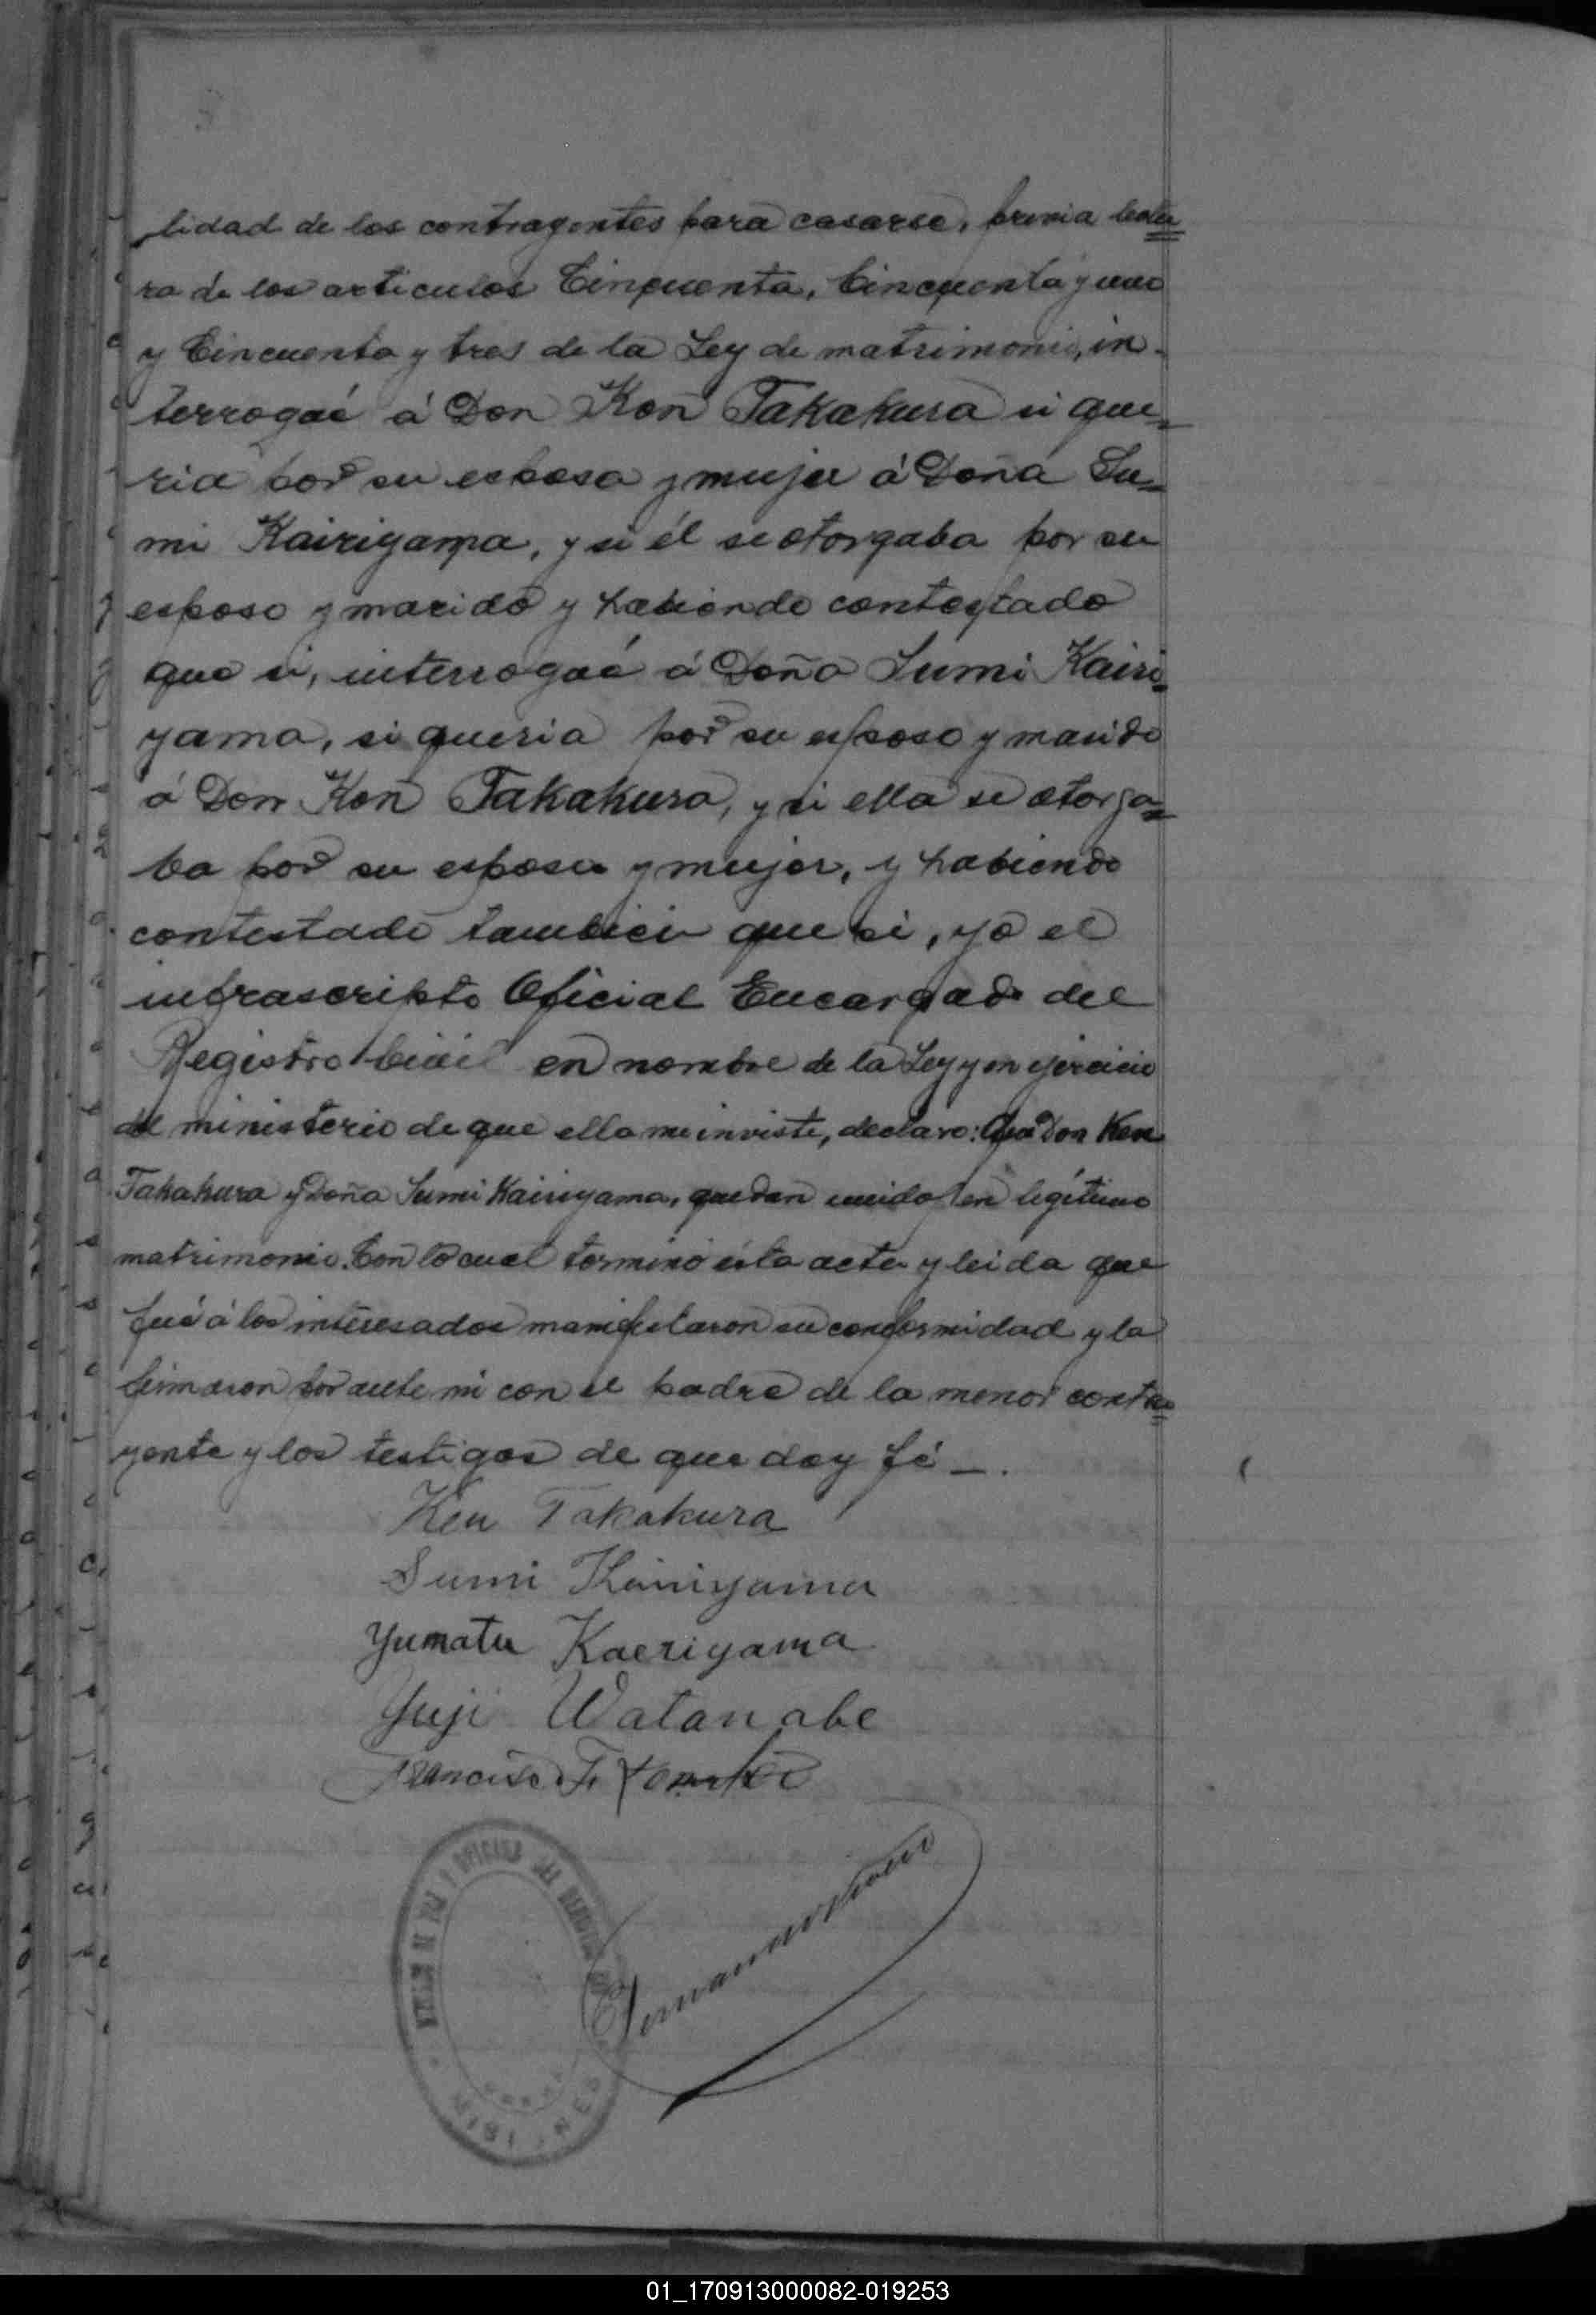 lidad de los contrayentes para casarse, previa lectu
ra de los articulos Cincuenta, Cincuenta y uno
y Cincuenta y tres de la Ley de matrimonio, in-
terrogué á Don Ken Takakura si que=
ria por su esposa y mujer á Doña Su=
mi Kairiyama, y si él se otorgaba por su
esposo y marido y habiendo contestado
que si, interrogué á Doña Sumi Kairi=
yama, si queria por su esposo y marido
á Don Ken Takakura, y si ella se otorga=
ba por su esposa y mujer, y habiendo
contestado tambien que si, yo el
infrascripto Oficial Encargado del
Registro Civil en nombre de la Ley y en ejercicio
del ministerio de que ella me inviste, declaro: Que Don Ken
Takakura y Doña Sumi Kairiyama, quedan unidos en legítimo
matrimonio. Con lo cual terminó ésta acta y leida que
fué á los interesados manifestaron su conformidad y la
firmaron por ante mi con el padre de la menor contra=
yente y los testigos de que doy fé —.
Ken Takakura
Sumi Kairiyama
Yumatu Kaeriyama
Yuji Watanabe
Francisco F.
DE PAZ Y OFICINA DEL REGISTRO
MISIONES
01_170913000082-019253